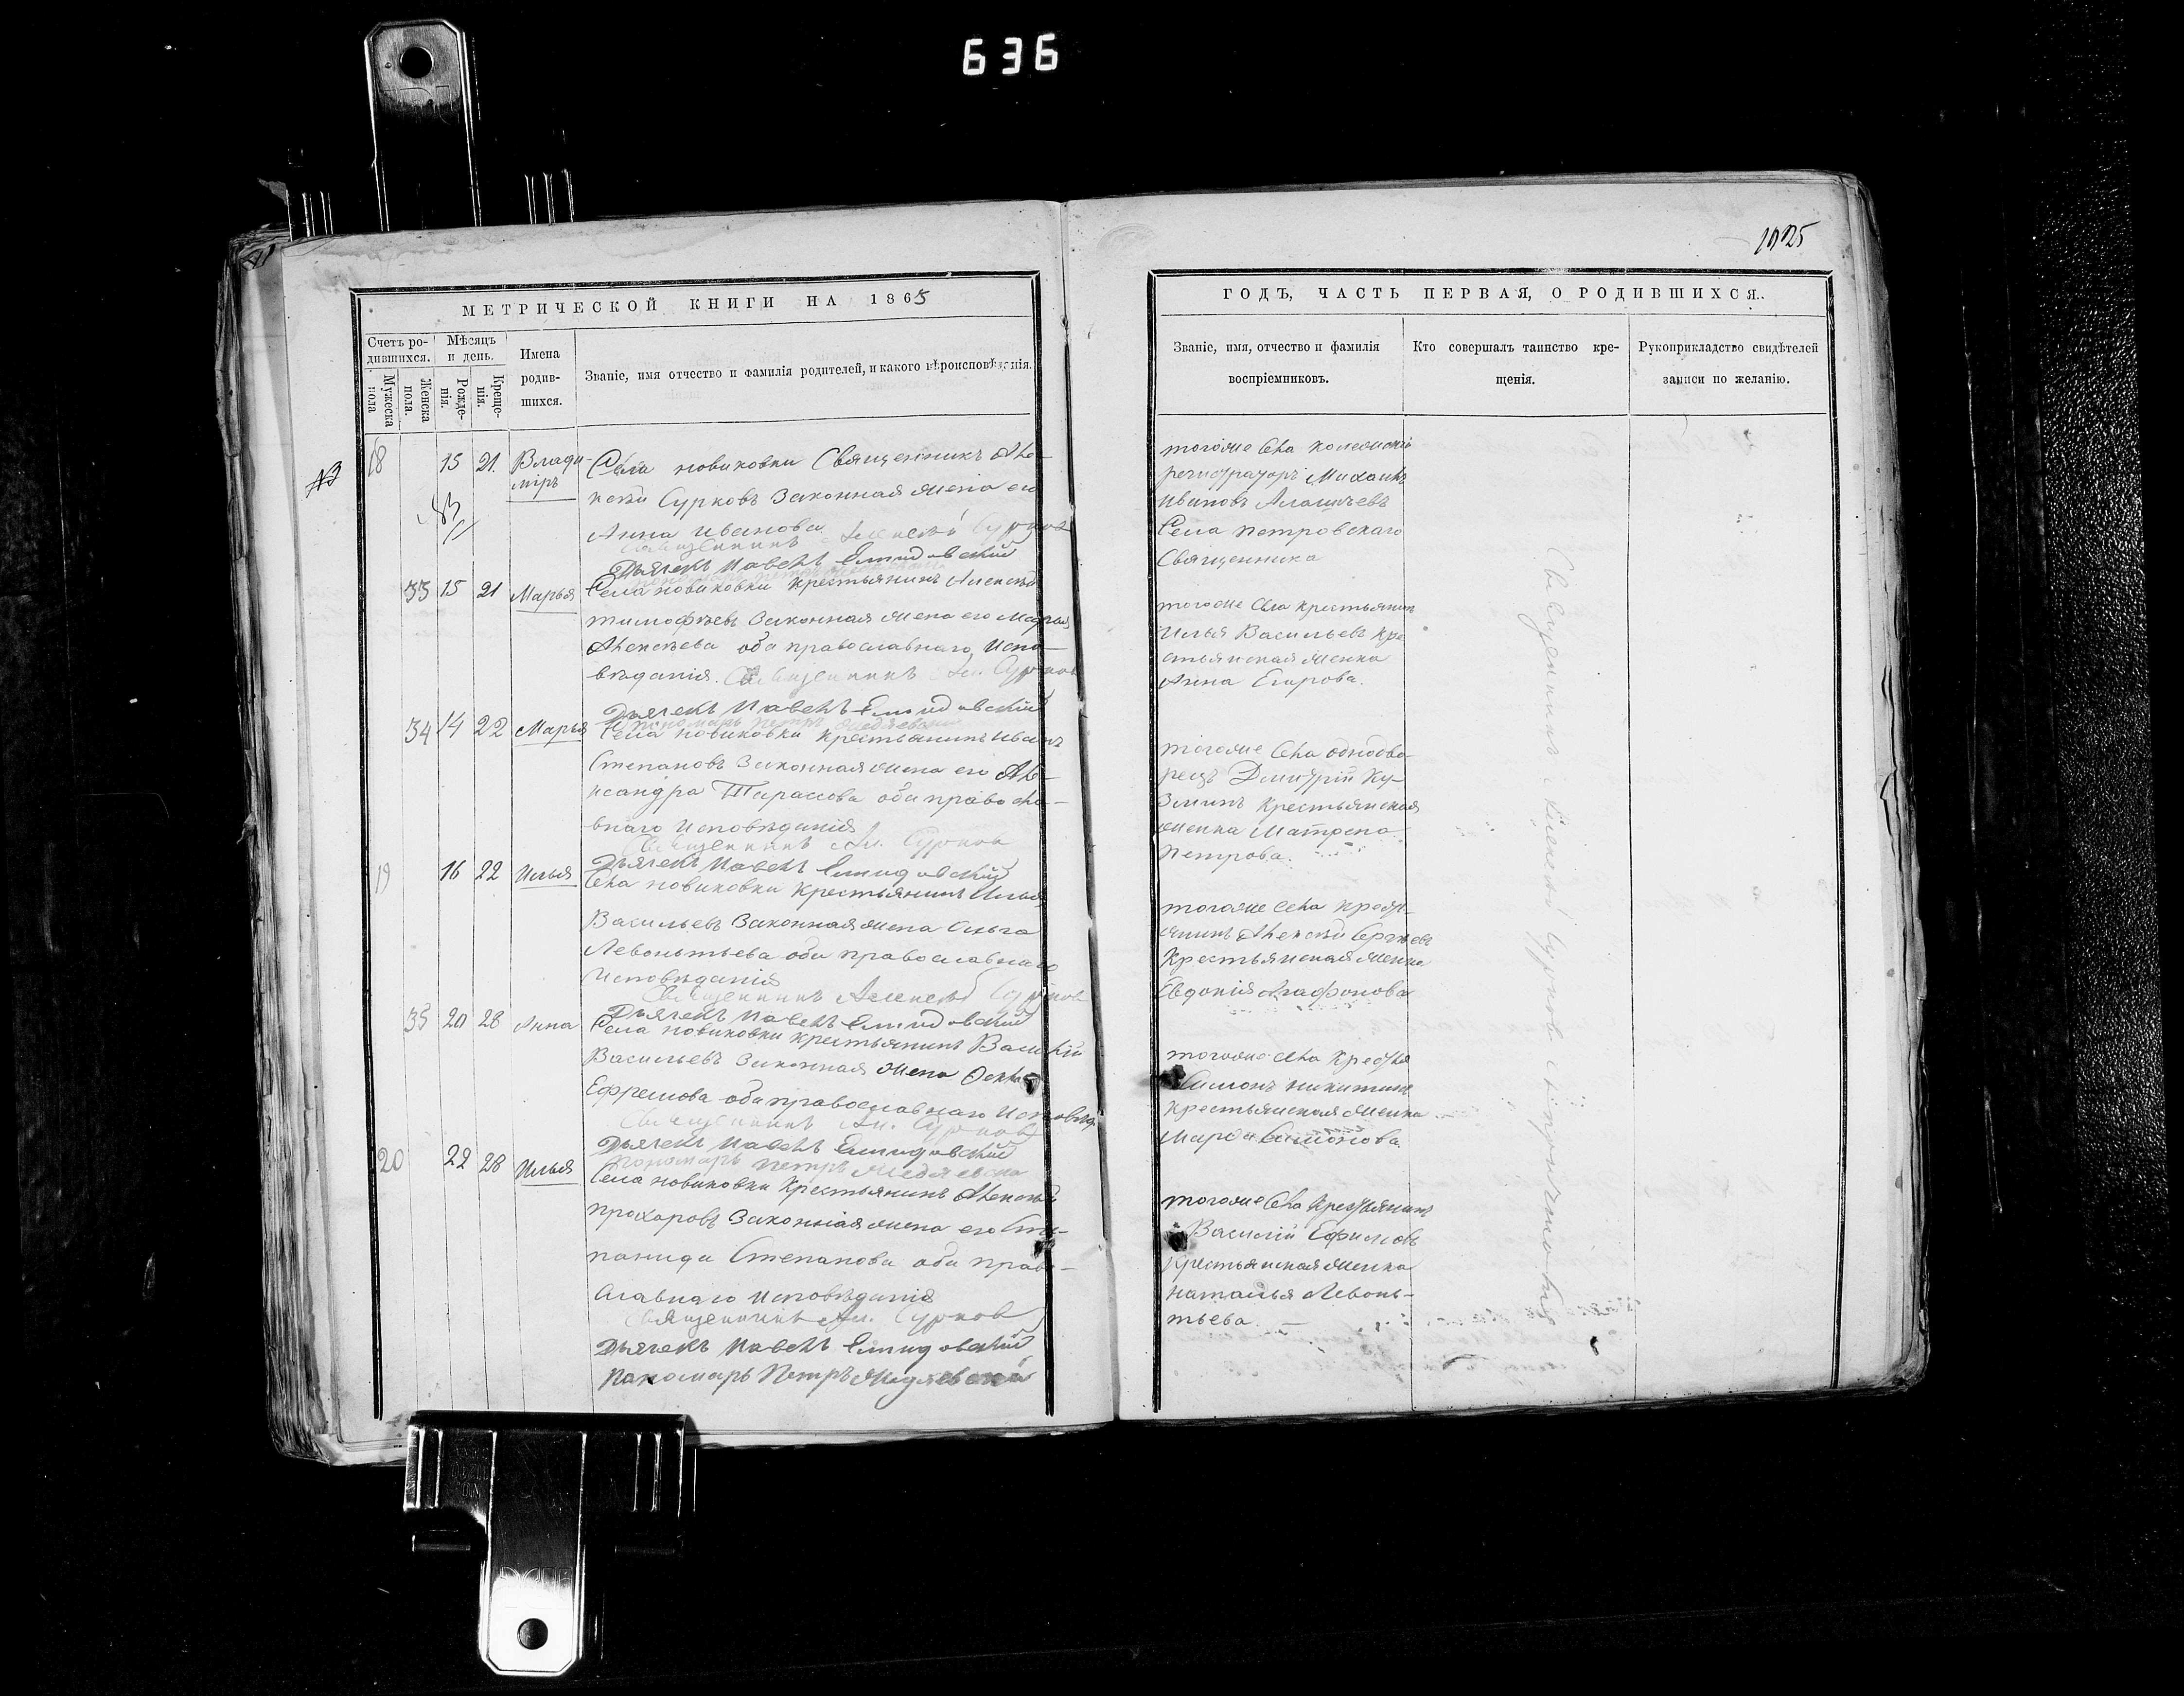 636
1025
МЕТРИЧЕСКОЙ КНИГИ НА 1865
Счетъ ро-
дившихся.
Мужеска
пола
Женска
пола.
Мѣсяцъ
и день.
Рожде-
нія.
Креще-
нія.
Имена
родив-
шихся.
Званіе, имя отчество и фамилія родителей, и какого вѣроисповѣданія.
18 15 21 Влади-
міръ
Села новиковки Священникъ Але-
ксѣй Сурковъ Законная жена его
Анна Иванова
Священникъ Алексѣй Сурков
Дьячекъ Павелъ
33 15 21 Марья
Села новиковки Крестьянинъ Алексѣй
тимофѣевъ Законная жена его Марья
Алексѣева оба православнаго Испо-
вѣданія. Священникъ Ал. Сурков
Дьячекъ Павелъ
пономарь петръ
34 14 22 Марья
Села новиковки крестьянинъ Иванъ
Степановъ Законная жена его Але-
ксандра Тарасова оба правосла-
внаго Исповѣданія
Священникъ Ал. Сурков
Дьячекъ Павелъ
19 16 22 Илья
Села новиковки Крестьянинъ Илья
Васильевъ Законная жена Ольга
Левонтьева оба православнаго
Исповѣданія
Священникъ Алексѣй Сурков
Дьячекъ Павелъ
35 20 28 Анна
Села новиковки крестьянинъ Василій
Васильевъ Законная жена
Ефремова оба православнаго Исповѣд.
Священникъ Ал. Сурков
Дьячекъ Павелъ
пономарь петръ
20 22 28 Илья
Села новиковки Крестьянинъ Алексѣй
прохоровъ Законная жена его Сте-
панида Степанова оба право-
славнаго Исповѣданія
Священникъ Ал. Сурков
Дьячекъ Павелъ
Пономарь Петръ
ГОДЪ, ЧАСТЬ ПЕРВАЯ, О РОДИВШИХСЯ.
Званіе, имя, отчество и фамилія
воспріемниковъ.
Кто совершалъ таинство кре-
щенія.
Рукоприкладство свидѣтелей
записи по желанію.
тогоже Села колежскій
регистраторъ Михаилъ
Ивановъ
Села петровскаго
Священника
тогоже Села крестьянин
Илья Васильевъ Кре
стьянская женка
Анна Егорова.
тогоже Села однодво-
рецъ Дмитрій Ку-
зминъ Крестьянская
женка Матрена
Петрова.
тогоже Села Крест-
янинъ Алексѣй Сергѣевъ
Крестьянская женка
Евдокія Агафонова
тогоже Села Крестья
Симонъ никитинъ
крестьянская женка
Марфа Симонова.
тогоже Села Крестьянинъ
Василій Ефимовъ
Крестьянская женка
наталья Левонь-
тьева.
Священникъ Алексѣй Сурков съ причтомъ